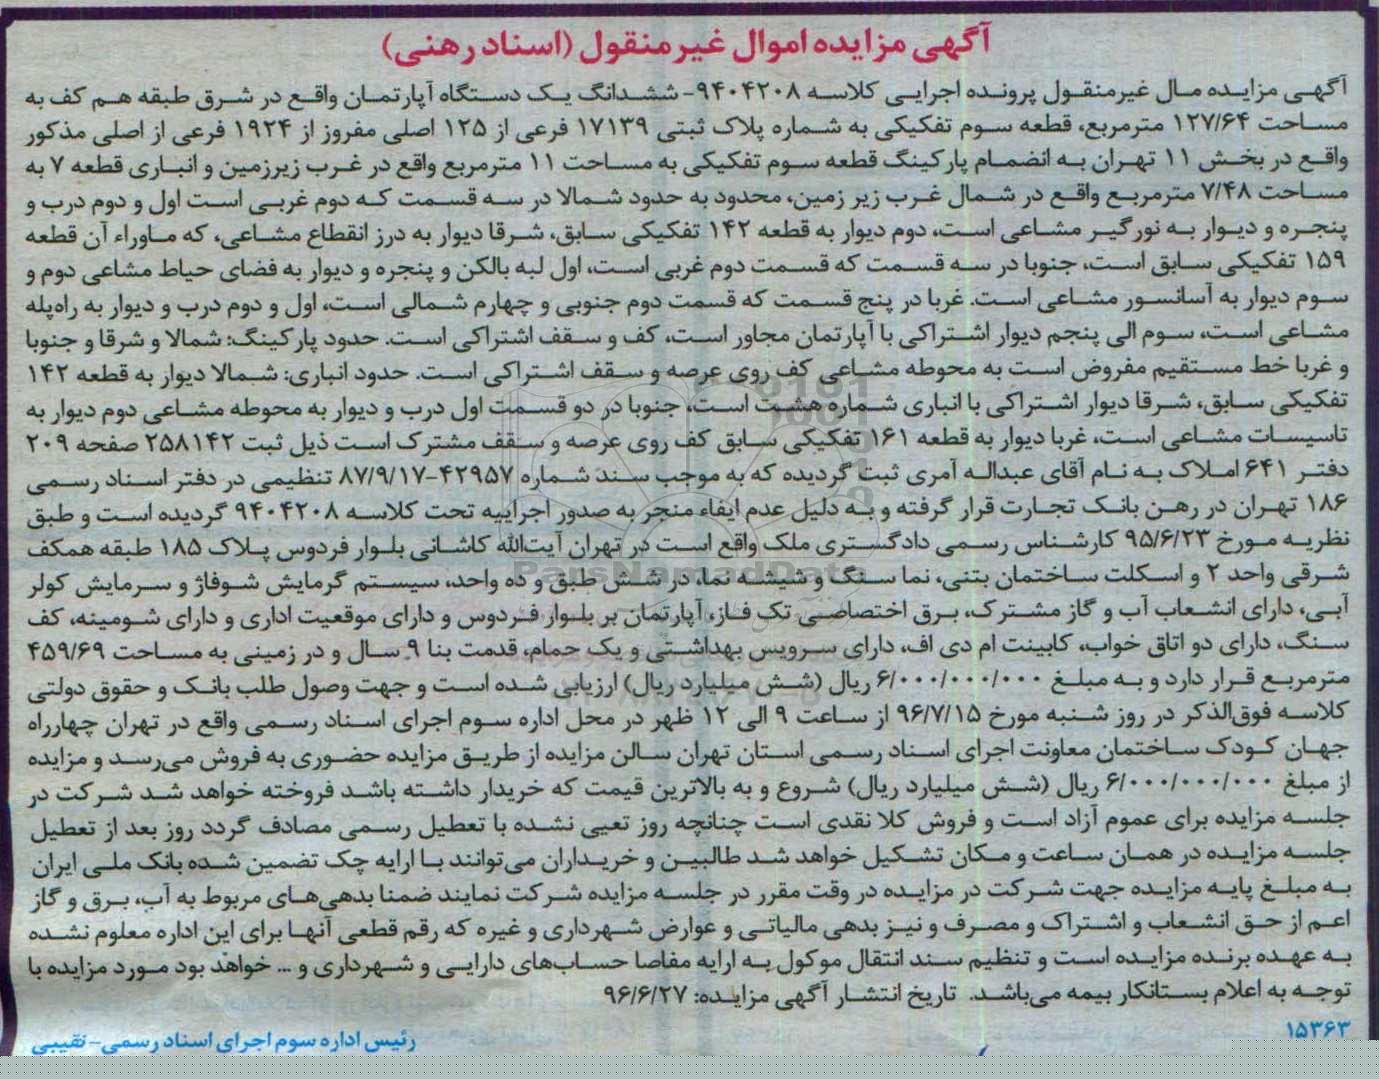 آگهی مزایده اموال غیرمنقول (اسناد رهنی)
آگهی مزایده مال غیرمنقول پرونده اجرایی کلاسه ۹۴۰۴۲۰۸- ششدانگ یک دستگاه آپارتمان واقع در شرق طبقه هم کف به
مساحت ۱۲۷/۶۴ مترمربع، قطعه سوم تفکیکی به شماره پلاک ثبتی ۱۷۱۳۹ فرعی از ۱۲۵ اصلی مفروز از ۱۹۲۴ فرعی از اصلی مذکور
واقع در بخش ۱۱ تهران به انضمام پارکینگ قطعه سوم تفکیکی به مساحت ۱۱ مترمربع واقع در غرب زیرزمین و انباری قطعه ۷ به
مساحت ۷/۴۸ مترمربع واقع در شمال غرب زیر زمین، محدود به حدود شمالا در سه قسمت که دوم غربی است اول و دوم درب و
پنجره و دیوار به نورگیر مشاعی است، دوم دیوار به قطعه ۱۴۲ تفکیکی سابق، شرقا دیوار به درز انقطاع مشاعی، که ماوراء آن قطعه
۱۵۹ تفکیکی سابق است، جنوبا در سه قسمت که قسمت دوم غربی است، اول لبه بالکن و پنجره و دیوار به فضای حیاط مشاعی دوم و
سوم دیوار به آسانسور مشاعی است. غربا در پنج قسمت که قسمت دوم جنوبی و چهارم شمالی است، اول و دوم درب و دیوار به راه‌پله
مشاعی است، سوم الی پنجم دیوار اشتراکی با آپارتمان مجاور است، کف و سقف اشتراکی است. حدود پارکینگ: شمالا و شرقا و جنوبا
و غربا خط مستقیم مفروض است به محوطه مشاعی کف روی عرصه و سقف اشتراکی است. حدود انباری: شمالا دیوار به قطعه ۱۴۲
تفکیکی سابق، شرقا دیوار اشتراکی با انباری شماره هشت است، جنوبا در دو قسمت اول درب و دیوار به محوطه مشاعی دوم دیوار به
تاسیسات مشاعی است، غربا دیوار به قطعه ۱۶۱ تفکیکی سابق کف روی عرصه و سقف مشترک است ذیل ثبت ۲۵۸۱۴۲ صفحه ۲۰۹
دفتر ۶۴۱ املاک به نام آقای عبداله آمری ثبت گردیده که به موجب سند شماره ۴۲۹۵۷-۸۷/۹/۱۷ تنظیمی در دفتر اسناد رسمی
۱۸۶ تهران در رهن بانک تجارت قرار گرفته و به دلیل عدم ایفاء منجر به صدور اجراییه تحت کلاسه ۹۴۰۴۲۰۸ گردیده است و طبق
نظریه مورخ ۹۵/۶/۲۳ کارشناس رسمی دادگستری ملک واقع است در تهران آیت‌الله کاشانی بلوار فردوس پلاک ۱۸۵ طبقه همکف
شرقی واحد ۲ و اسکلت ساختمان بتنی، نما سنگ و شیشه نما، در شش طبق و ده واحد، سیستم گرمایش شوفاژ و سرمایش کولر
آبی، دارای انشعاب آب و گاز مشترک، برق اختصاصی تک فاز، آپارتمان بر بلوار فردوس و دارای موقعیت اداری و دارای شومینه، کف
سنگ، دارای دو اتاق خواب، کابینت ام دی اف، دارای سرویس بهداشتی و یک حمام، قدمت بنا ۹ سال و در زمینی به مساحت ۴۵۹/۶۹
مترمربع قرار دارد و به مبلغ ۶/۰۰۰/۰۰۰/۰۰۰ ریال (شش میلیارد ریال) ارزیابی شده است و جهت وصول طلب بانک و حقوق دولتی
کلاسه فوق‌الذکر در روز شنبه مورخ ۹۶/۷/۱۵ از ساعت ۹ الی ۱۲ ظهر در محل اداره سوم اجرای اسناد رسمی واقع در تهران چهارراه
جهان کودک ساختمان معاونت اجرای اسناد رسمی استان تهران سالن مزایده از طریق مزایده حضوری به فروش می‌رسد و مزایده
از مبلغ ۶/۰۰۰/۰۰۰/۰۰۰ ریال (شش میلیارد ریال) شروع و به بالاترین قیمت که خریدار داشته باشد فروخته خواهد شد شرکت در
جلسه مزایده برای عموم آزاد است و فروش کلا نقدی است چنانچه روز تعیی نشده با تعطیل رسمی مصادف گردد روز بعد از تعطیل
جلسه مزایده در همان ساعت و مکان تشکیل خواهد شد طالبین و خریداران می‌توانند با ارایه چک تضمین شده بانک ملی ایران
به مبلغ پایه مزایده جهت شرکت در مزایده در وقت مقرر در جلسه مزایده شرکت نمایند ضمنا بدهی‌های مربوط به آب، برق و گاز
اعم از حق انشعاب و اشتراک و مصرف و نیز بدهی مالیاتی و عوارض شهرداری و غیره که رقم قطعی آنها برای این اداره معلوم نشده
به عهده برنده مزایده است و تنظیم سند انتقال موکول به ارایه مفاصا حساب‌های دارایی و شهرداری و ... خواهد بود مورد مزایده با
توجه به اعلام بستانکار بیمه می‌باشد. تاریخ انتشار آگهی مزایده: ۹۶/۶/۲۷
۱۵۳۶۳
رئیس اداره سوم اجرای اسناد رسمی- نقیبی
ParsNamadData